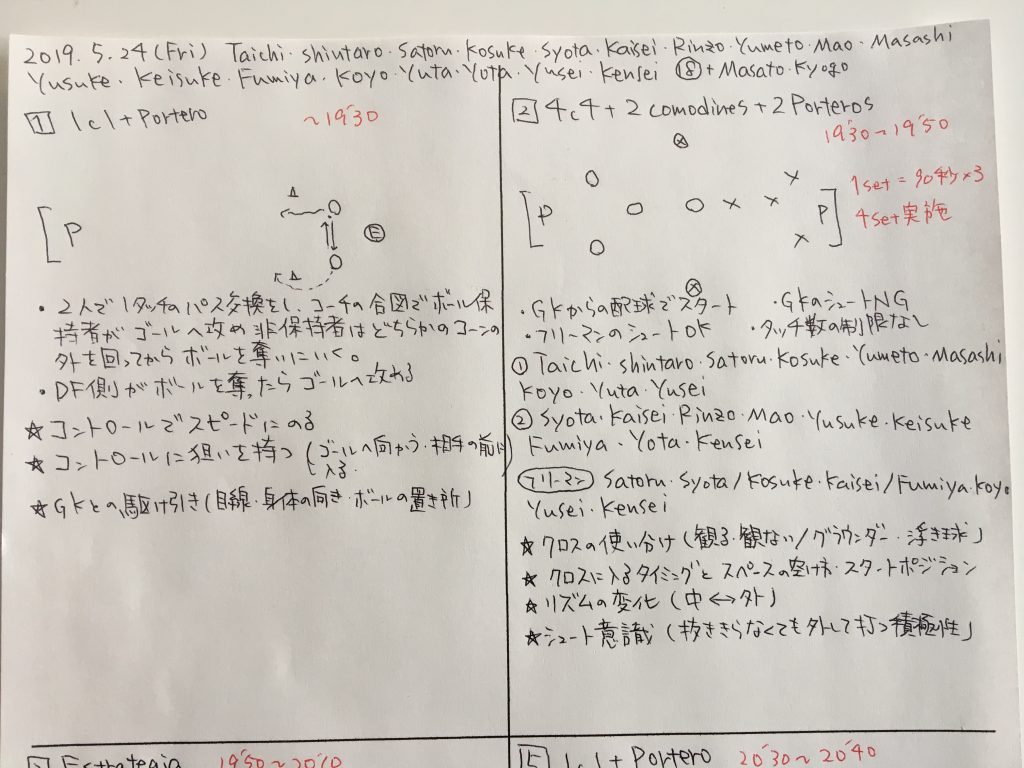 2019. 5. 24 (Fri) Taichi・shintaro・Satoru・Kosuke・Syota・Kaisei・Rinzo・Yumeto・Mao・Masashi
Yusuke・Keisuke・Fumiya・Koyo・Yuta・Yota・Yusei・Kensei ⑱ + Masato・Kyogo
1 1c1 + Portero
~19'30
P
△
○
○
E
△
・2人で1タッチのパス交換をし、コーチの合図でボール保
持者がゴールへ攻め非保持者はどちらかのコーンの
外を回ってからボールを奪いにいく。
・DF側がボールを奪ったらゴールへ攻める
★コントロールでスピードにのる
★コントロールに狙いを持つ (ゴールへ向かう・相手の前に
入る.
★GKとの駆け引き (目線・身体の向き・ボールの置き所)
2 4c4 + 2 comodines + 2 Porteros
19'30~19'50
1set = 90秒×3
4set実施
P
P
・GKからの配球でスタート ・GKのシュートNG
・フリーマンのシュートOK ・タッチ数の制限なし
① Taichi・shintaro・Satoru・Kosuke・Yumeto・Masashi
Koyo・Yuta・Yusei
② Syota・Kaisei・Rinzo・Mao・Yusuke・Keisuke
Fumiya・Yota・Kensei
フリーマン Satoru・Syota/Kosuke・Kaisei/Fumiya・Koyo
Yusei・Kensei
★クロスの使い分け (観る・観ない/グラウンダー・浮き球)
★クロスに入るタイミングとスペースの空け方・スタートポジション
★リズムの変化 (中↔外)
★シュート意識 (抜ききらなくても外して打つ積極性)
Estrategia 19'50~20'10
1c1 + Portero 20'30~20'40